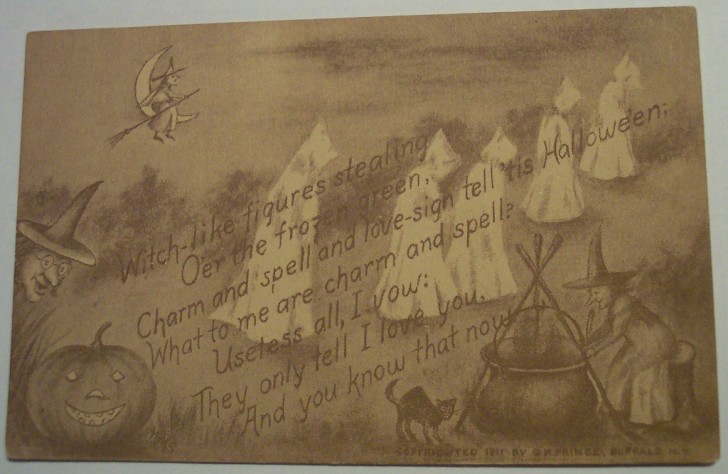 Witch-like figures stealing
O'er the frozen green,
Charm and spell and love-sign tell 'tis Hallowe'en;
What to me are charm and spell?
Useless all, I vow:
They only tell I love you.
And you know that now
COPYRIGHTED 1911 BY PRINCE, BUFFALO N.Y.